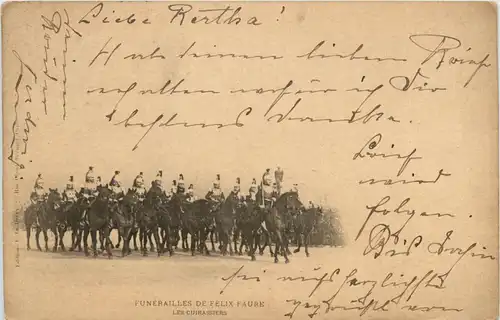 Liebe Kertha!
Hab deinen lieben Brief
erhalten wofür ich Dir
bestens danke.
Brief
wird
folgen.
Bis dahin
sei aufs herzlichste
gegrüßt von
FUNÉRAILLES DE FELIX FAURE
LES CUIRASSIERS